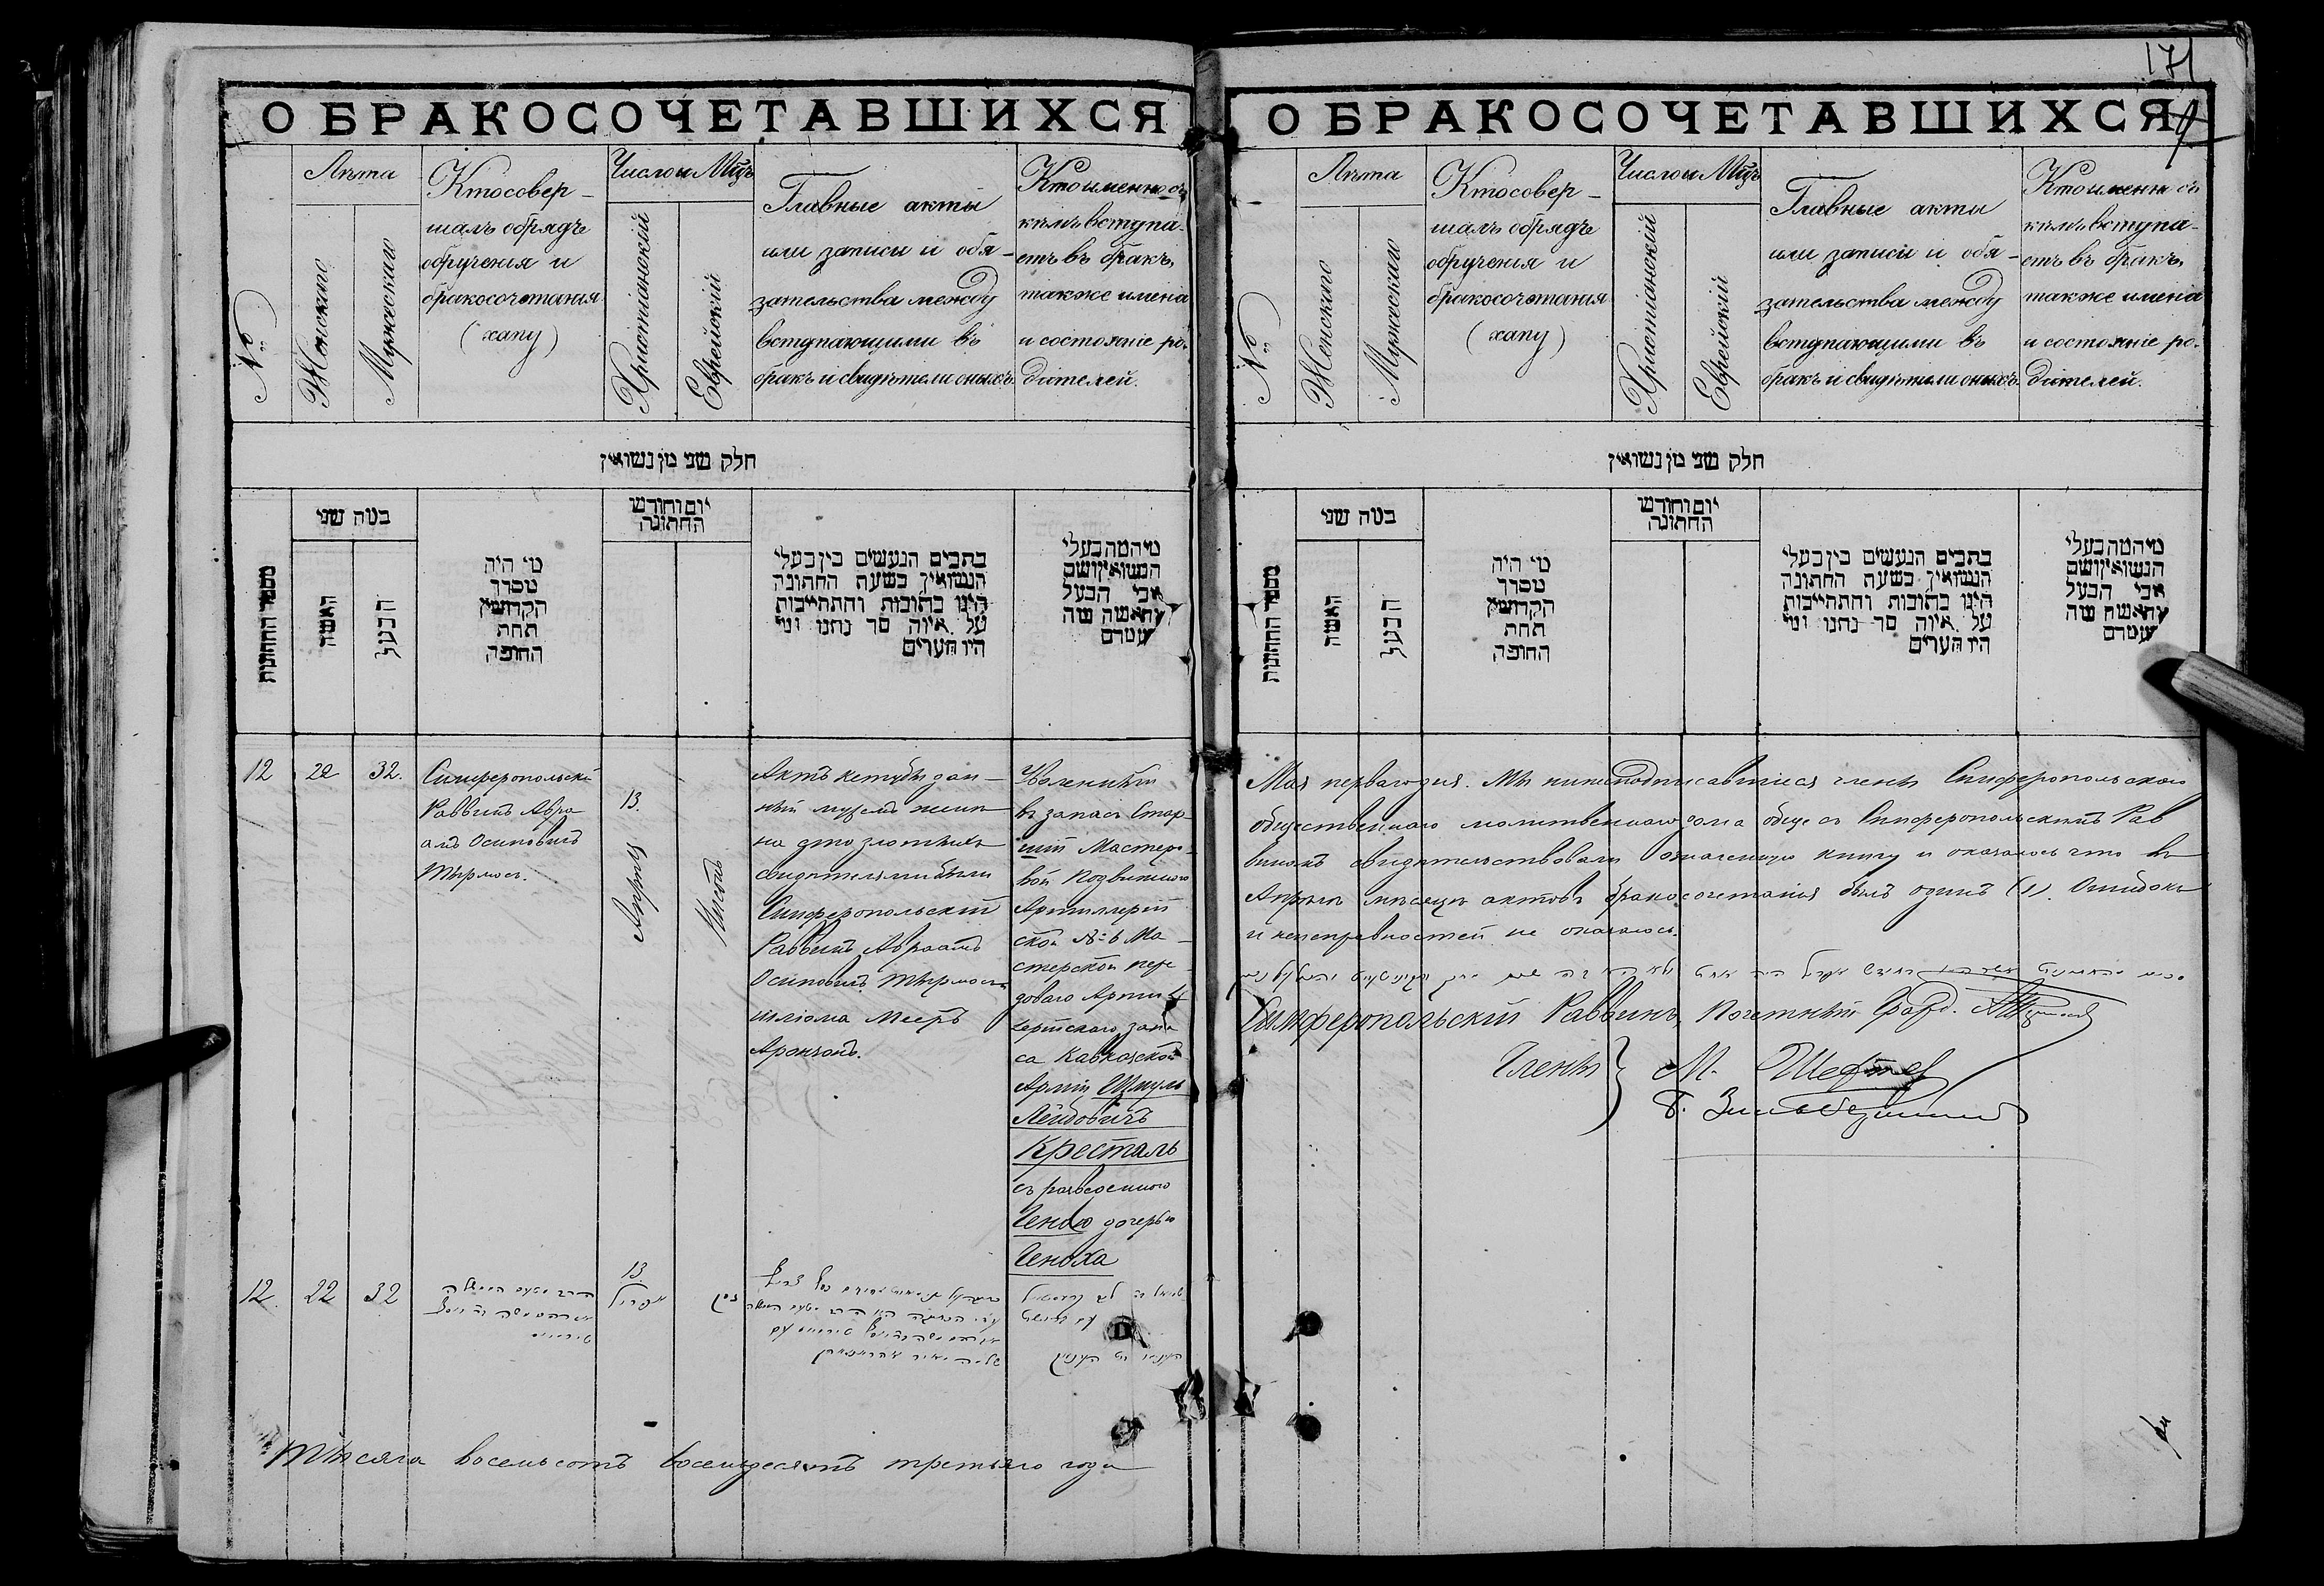 171
О БРАКОСОЧЕТАВШИХСЯ
№
Лѣта
Женскаго
Мужескаго
Кто совер-
шалъ обрядъ
обрученія и
бракосочетанія
(хапу)
Число и Мѣцъ
Христіанскій
Еврейскій
Главные акты
или записи и обя-
зательства между
вступающими въ
бракъ и свидѣтели оныхъ.
Кто именно съ
кѣмъ вступа-
етъ въ бракъ,
также имена
и состояніе ро-
дителей.
חלק שני מן נשואין
מספר החתונות
במה שני
האשה
הבעל
מי היה
מסדר
הקדושין
תחת
החופה
יום וחודש
החתונה
כתבים הנעשים בין בעלי
הנשואין בשעת החתונה
היינו כתובות והתחייבות
על איזה סך נתנו ומי
היו העדים
מיהמה בעלי
הנשואין ושם
אבי הבעל
והאשה מה
מעמדם
12
22
32.
Симферопольскій
Раввинъ Авра-
амъ Осиповичъ
Тырмосъ.
13.
Апрѣля
Нисонъ
Актъ кетубы дан-
ный мужемъ женѣ
на сто злотыхъ
свидѣтелями были
Симферопольскій
Раввинъ Авраамъ
Осиповичъ Тырмосъ
шліома Мееръ
Аронховъ.
Уволенный
въ запасъ Стар-
шій Мастеро-
вой Подвижной
Артиллерій
ской № 6 Ма-
стерской пере-
доваго Артил
лерійскаго запа
са Кавказской
Арміи Шмуль
Лейбовичъ
Кресталь
съ разведенною
Геною дочерью
Геноха
12.
22
32
13
אפריל
ניסן
Тысяча восемьсотъ восемдесятъ третьяго года
О БРАКОСОЧЕТАВШИХСЯ
№
Лѣта
Женскаго
Мужескаго
Кто совер-
шалъ обрядъ
обрученія и
бракосочетанія
(хапу)
Число и Мѣцъ
Христіанскій
Еврейскій
Главные акты
или записи и обя-
зательства между
вступающими въ
бракъ и свидѣтели оныхъ.
Кто именно съ
кѣмъ вступа-
етъ въ бракъ,
также имена
и состояніе ро-
дителей.
חלק שני מן נשואין
מספר החתונות
במה שני
האשה
הבעל
מי היה
מסדר
הקדושין
תחת
החופה
יום וחודש
החתונה
כתבים הנעשים בין בעלי
הנשואין בשעת החתונה
היינו כתובות והתחייבות
על איזה סך נתנו ומי
היו העדים
מיהמה בעלי
הנשואין ושם
אבי הבעל
והאשה מה
מעמדם
Мая перваго дня. Мы нижеподписавшіеся члены Симферопольскаго
общественнаго молитвеннаго дома обще съ Симферопольскимъ Рав
виномъ свидѣтельствовали означенную книгу и оказалось что въ
Апрѣлѣ мѣсяцѣ актовъ бракосочетанія былъ одинъ (1). Ошибокъ
и неисправностей не оказалось.
Симферопольскій Раввинъ, Почетный Гражд.
Члены } М. Шефтел